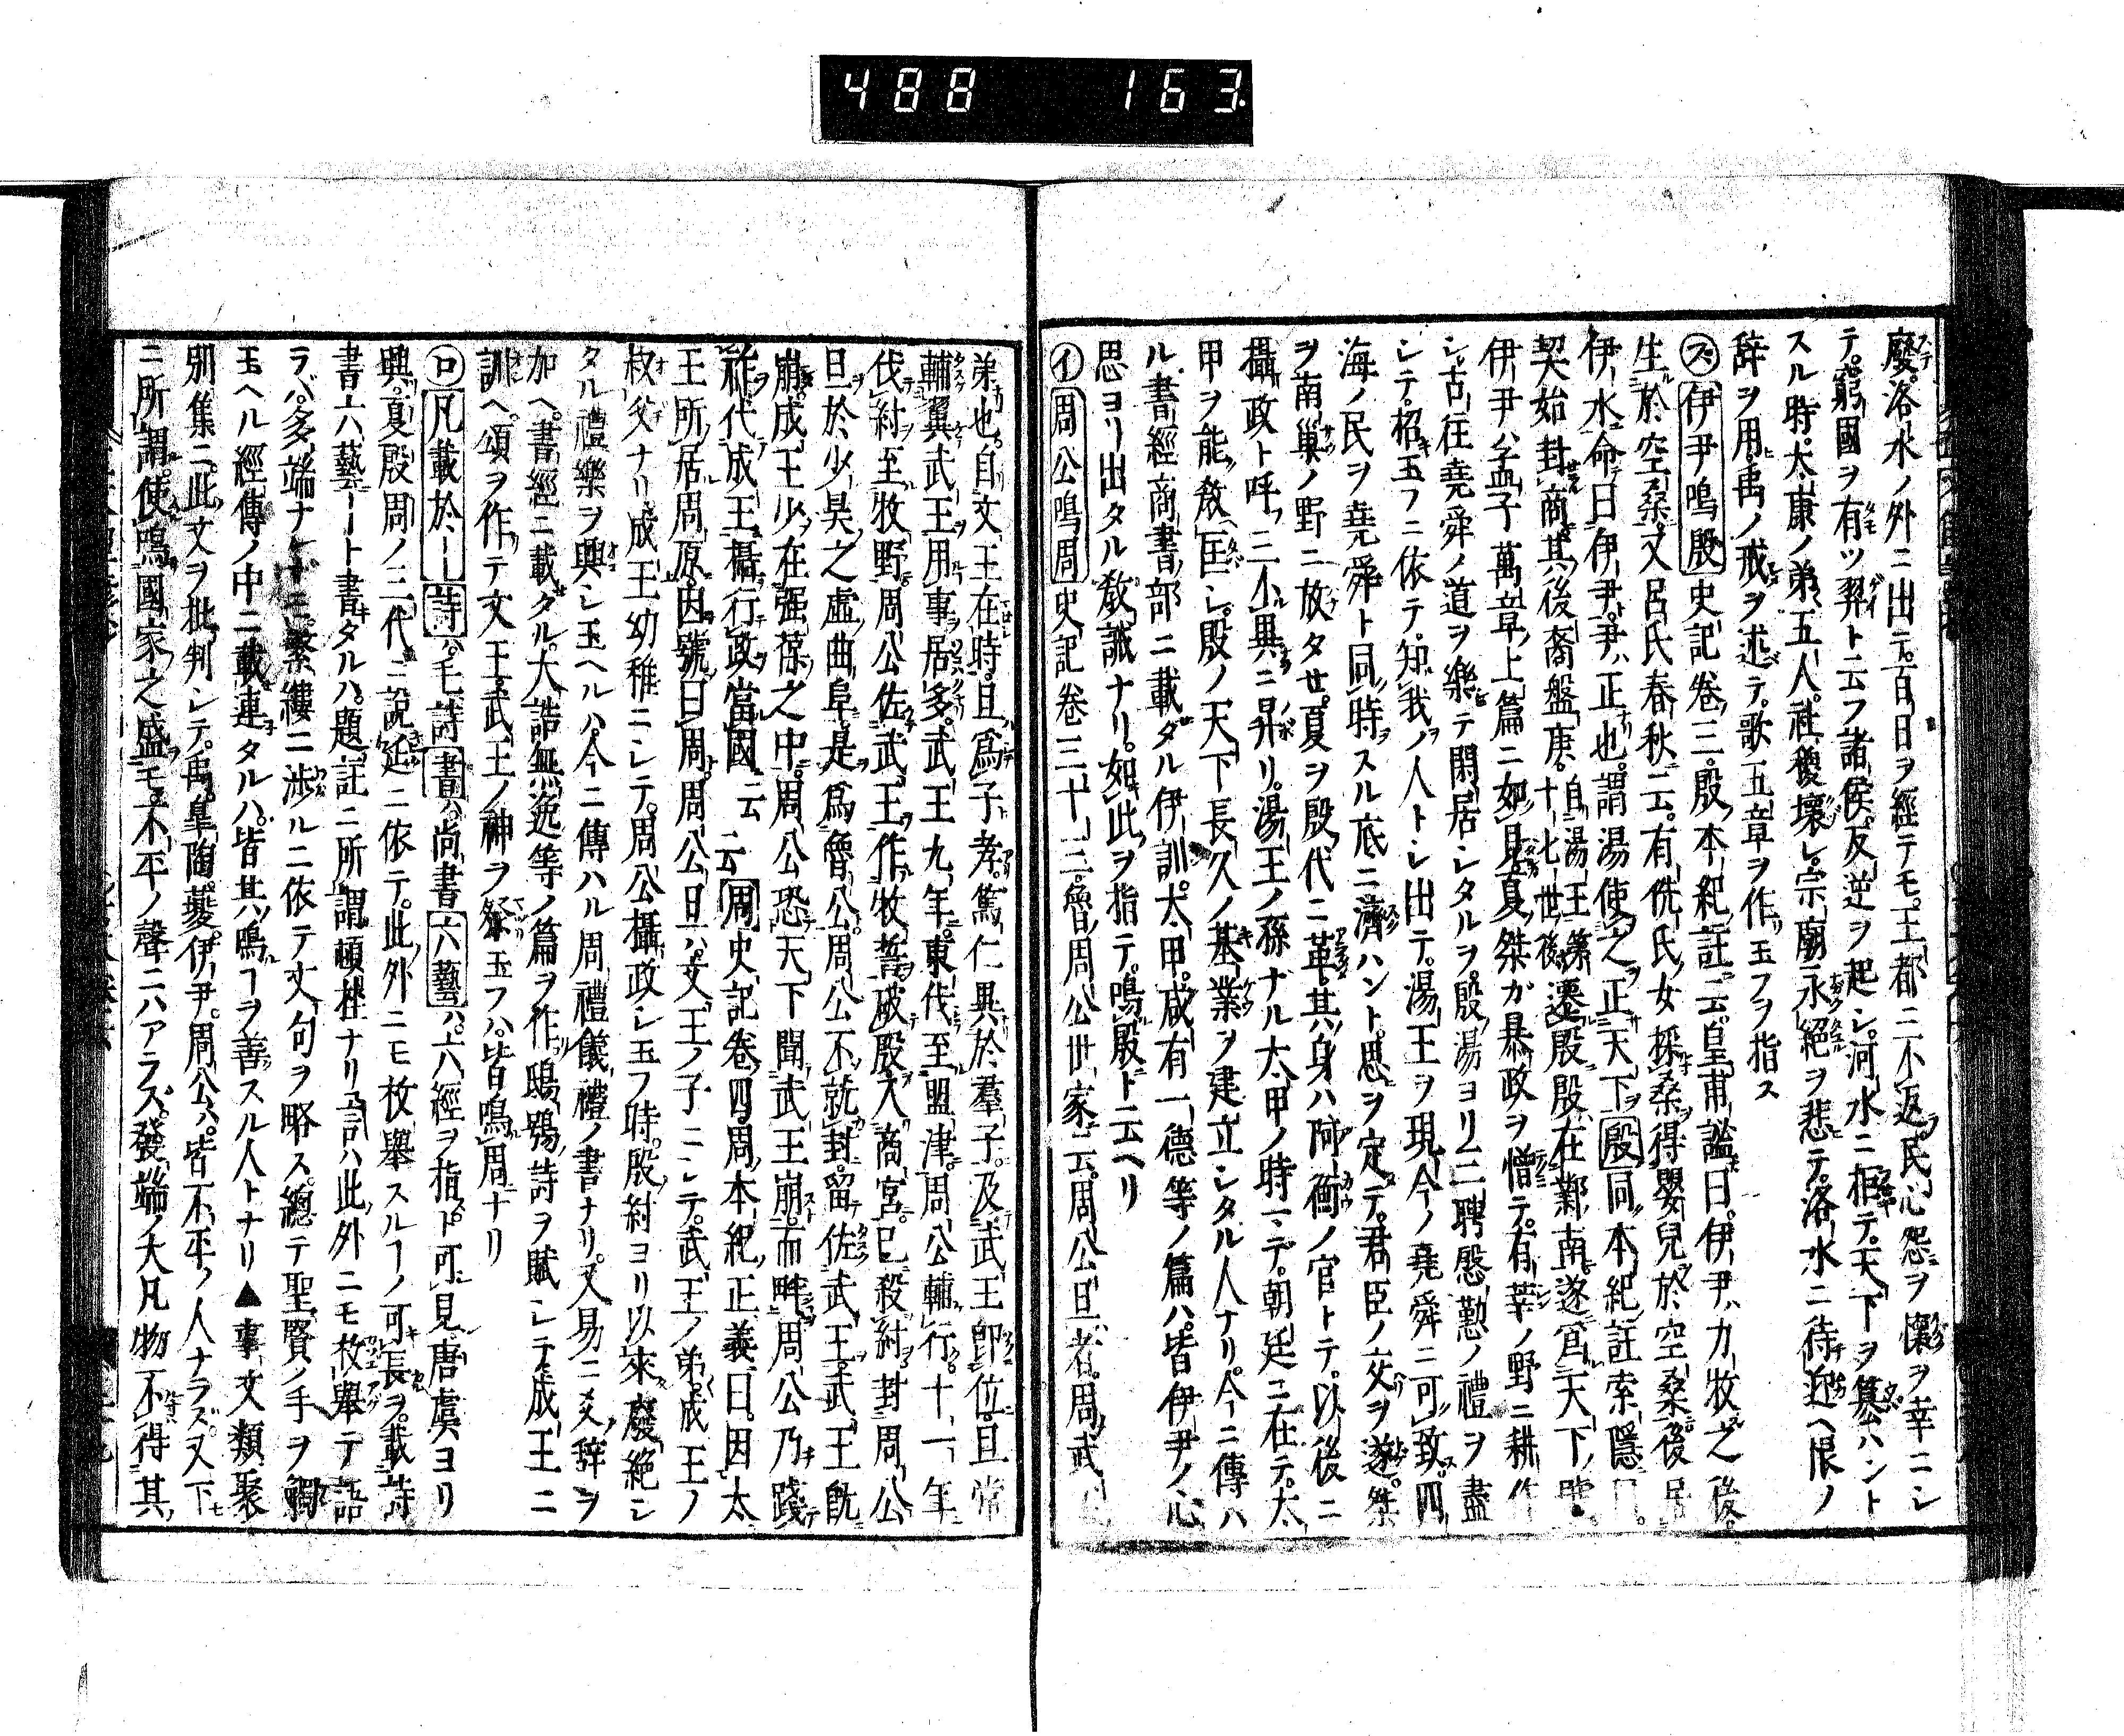 488 163
廢洛水ノ外ニ出テ百日ヲ經テモ王都ニ不返民心怨ヲ懷ヲ幸ニシ
テ窮國ヲ有ツ羿ト云フ諸侯反逆ヲ起シ河水ニ相テ天下ヲ簒ハント
スル時太康ノ弟五人社稷壞レ宗廟ニ永絕ヲ悲テ洛水ニ待迎ヘ恨ノ
辞ヲ用禹ノ戒ヲ述テ歌五章ヲ作玉フヲ指ス
ス伊尹鳴殷史記卷三殷本紀註云皇甫謐曰伊尹力牧之後
生於空桑又呂氏春秋云有侁氏女採桑得嬰兒於空桑後居
伊水命曰伊尹尹正也謂湯使之正天下殷同本紀註索隱
契始封商其後裔盤庚自湯王第十七世後遷殷殷在鄴南遂官天下號
伊尹ハ孟子萬章上篇ニ如見夏桀ガ暴政ヲ憎テ有莘ノ野ニ耕作
シ古往堯舜ノ道ヲ樂テ閑居シタルヲ殷湯ヨリ三聘慇懃ノ禮ヲ盡
シテ招玉フニ依テ知我ノ人トシ出テ湯王ヲ現今ノ堯舜ニ可致四
海ノ民ヲ堯舜ト同時スル底ニ濟ハント思ヲ定テ君臣ノ交ヲ遂桀
ヲ南巢ノ野ニ放タセ夏ヲ殷代ニ革其身ハ阿衡ノ官トテ以後ニ
攝政ト呼フニ不異ニ昇リ湯王ノ孫ナル太甲ノ時ニテ朝廷ニ在テ太
甲ヲ能敎匡シ殷ノ天下長久ノ基業ヲ建立シタル人ナリ今ニ傳ハ
ル書經商書部ニ載ダル伊訓太甲咸有一德等ノ篇ハ皆伊尹ノ心
思ヨリ出タル敎誡ナリ如此ヲ指テ鳴殷ト云ヘリ
イ周公鳴周史記卷三十三魯周公世家云周公旦者周武
弟也自文王在時旦爲子孝篤仁異於羣子及武王卽位旦常
輔翼武王用事居多武王九年東伐至盟津周公輔行十一年
伐紂至牧野周公佐武王作牧誓破殷入商宮已殺紂封周公
旦於少昊之虛曲阜是爲魯公周公不就封留佐武王武王旣
崩成王少在强葆之中周公恐天下聞武王崩而畔周公乃踐
祚代成王攝行政當國云云周史記卷四周本紀正義曰因太
王所居周原因號曰周周公旦ハ文王ノ子ニシテ武王ノ弟成王ノ
叔父ナリ成王幼稚ニシテ周公攝政シ玉フ時殷紂ヨリ以來廢絕シ
タル禮樂ヲ興シ玉ヘルハ今ニ傳ハル周禮儀禮ノ書ナリ又易ニ爻辞ヲ
加ヘ書經ニ載タル大誥無逸等ノ篇ヲ作鴟鴞詩ヲ賦シテ成王ニ
訓ヘ頌ヲ作テ文王武王ノ神ヲ祭玉フハ皆鳴周ナリ
ロ凡載於ー詩ハ毛詩書ハ尚書六藝ハ六經ヲ指ト可見唐虞ヨリ
興夏殷周ノ三代ニ說延ニ依テ此外ニモ枚舉スルーノ可長ヲ載詩
書六藝ーート書タルハ題註ニ所謂頓挫ナリ言ハ此外ニモ枚舉テ語
ラバ多端ナレドニ繁縷ニ涉ルニ依テ文句ヲ略ス總テ聖賢ノ手ヲ觸
玉ヘル經傳ノ中ニ載連タルハ皆其鳴ーヲ善スル人トナリ▲事文類聚
別集ニ此文ヲ批判シテ禹皐陶夔伊尹周公ハ皆不平ノ人ナラズ又下
ニ所謂使鳴國家之盛モ不平ノ聲ニハアラズ發端ノ大凡物不得其